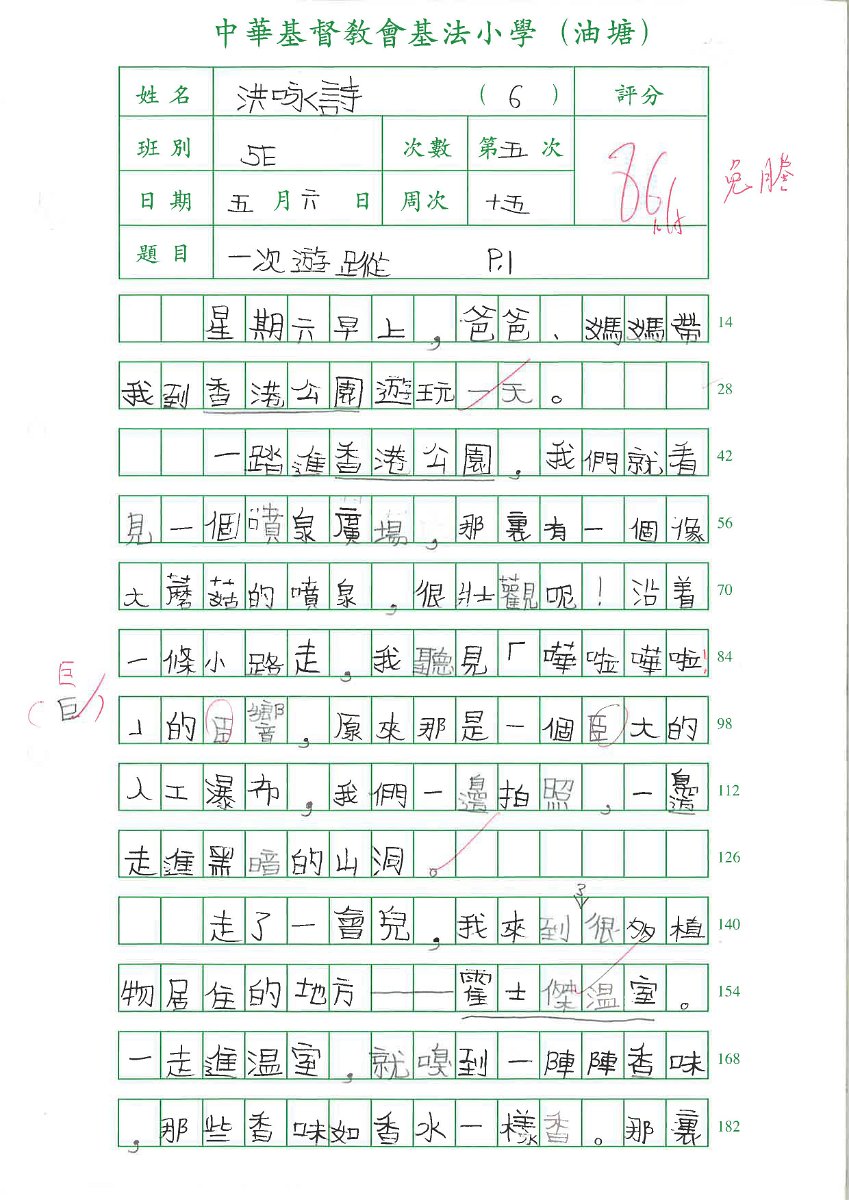 中華基督教會基法小學（油塘）
姓名 洪咏詩 （6） 評分
班別 5E 次數 第五次
86
免謄
日期 五月六日 周次 十五
題目 一次遊蹤 P.1
星期六早上，爸爸、媽媽帶 14
我到香港公園遊玩一天。 28
一踏進香港公園，我們就看 42
見一個噴泉廣場，那裏有一個像 56
大蘑菇的噴泉，很壯觀呢！沿着 70
一條小路走，我聽見「嘩啦嘩啦! 84
巨
（巨）
」的臣響，原來那是一個臣大的 98
人工瀑布，我們一邊拍照，一邊 112
走進黑暗的山洞。 126
走了一會兒，我來到了很多植 140
物居住的地方——霍士傑溫室。 154
一走進溫室，就嗅到一陣陣香味 168
，那些香味如香水一樣香。那裏 182